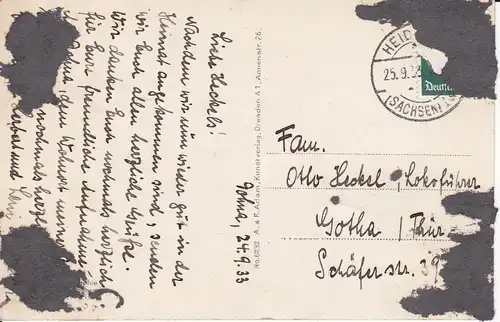 Gotha, 24.9.33
Liebe Heckels!
Nachdem wir nun wieder gut in der
Heimat angekommen sind, senden
wir Euch allen herzliche Grüße.
Wir danken Euch nochmals herzlich
für Eure freundliche Aufnahme
dem Wohnort
nochmals herzl
und
No. 6232 A. & R. Adam, Kunstverlag, Dresden A 1, Annenstr. 26.
HEID
25.9.33
(SACHSEN)
Deutsch
Fam.
Otto Heckel, Lokoführer
Gotha / Thür.
Schäferstr. 39